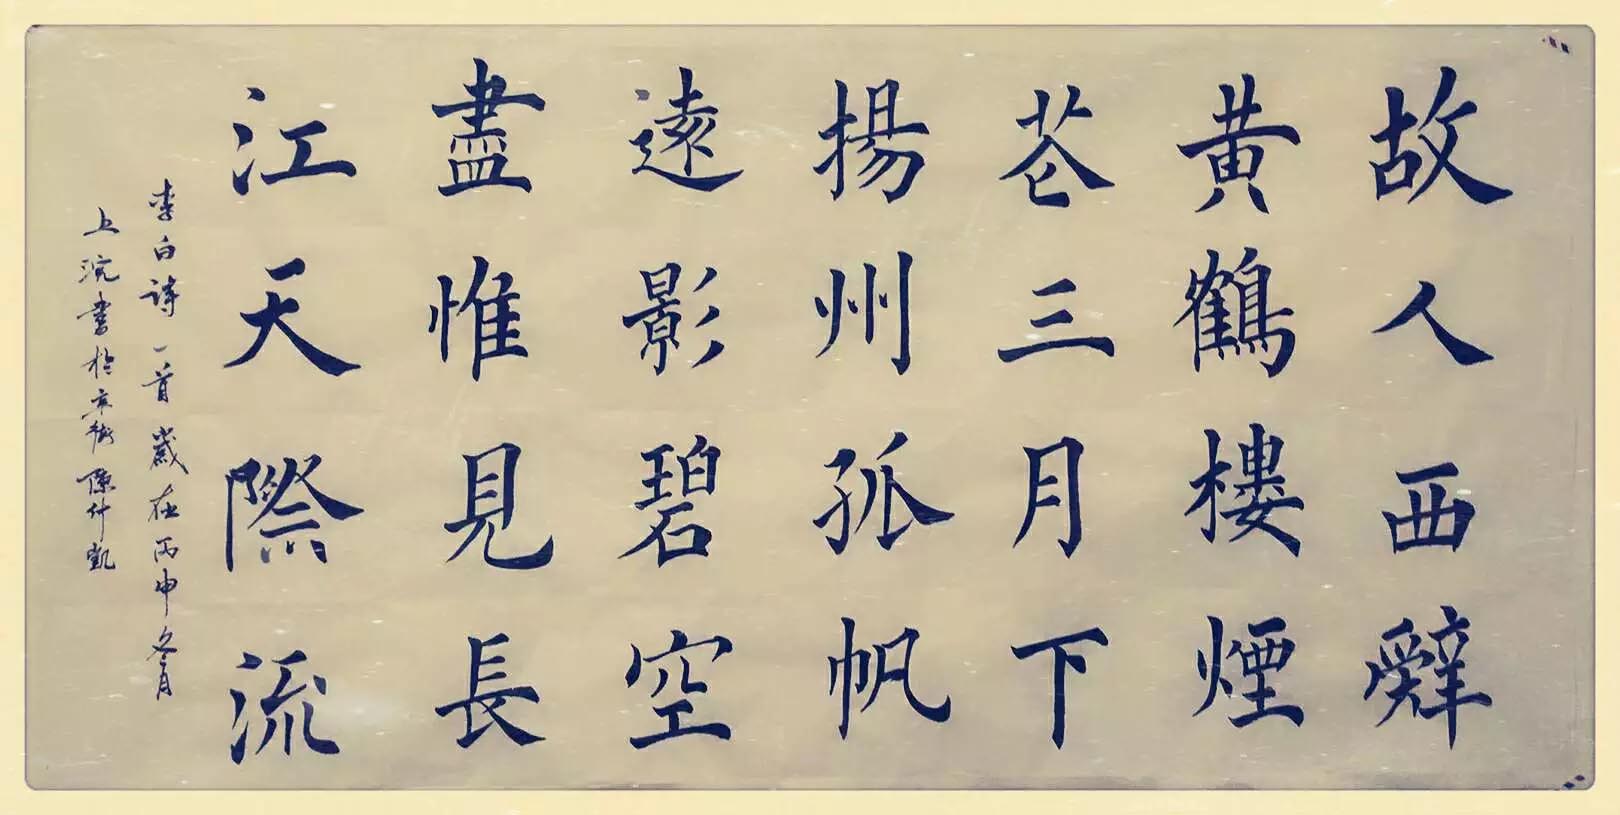 故人西辤
黄鶴樓煙
苍三月下
揚州孤帆
遠影碧空
盡惟見長
江天際流
李白詩一首歲在丙申冬月
上浣書於京